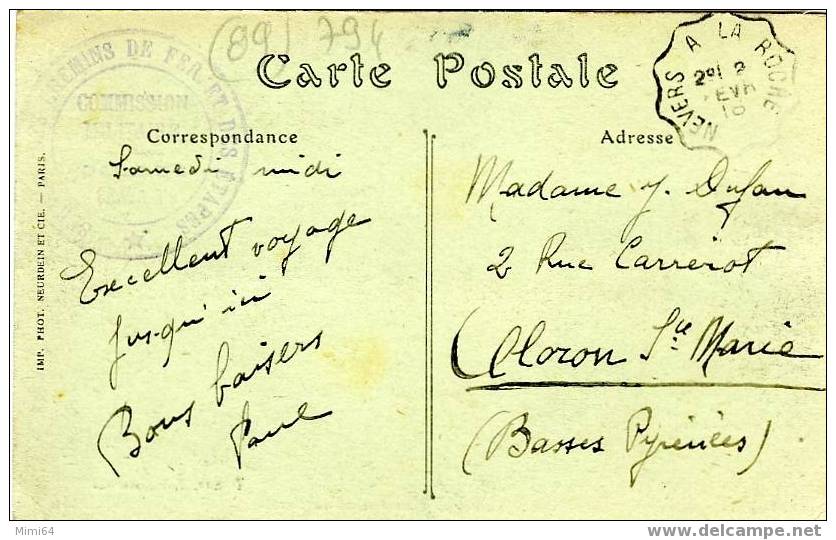 (89) 794
Carte Postale
CHEMINS DE FER ET DES ÉTAPES
COMMISSION
MILITAIRE
NEVERS A LA ROCHE
2
FEVR
Correspondance
Samedi midi
Excellent voyage
jusqu'ici
Bons baisers
Paul
Adresse
Madame J. Dufau
2 Rue Carrerot
Oloron Ste Marie
(Basses Pyrénées)
IMP. PHOT. NEURDEIN ET CIE. — PARIS.
Mimi64
www.delcampe.net